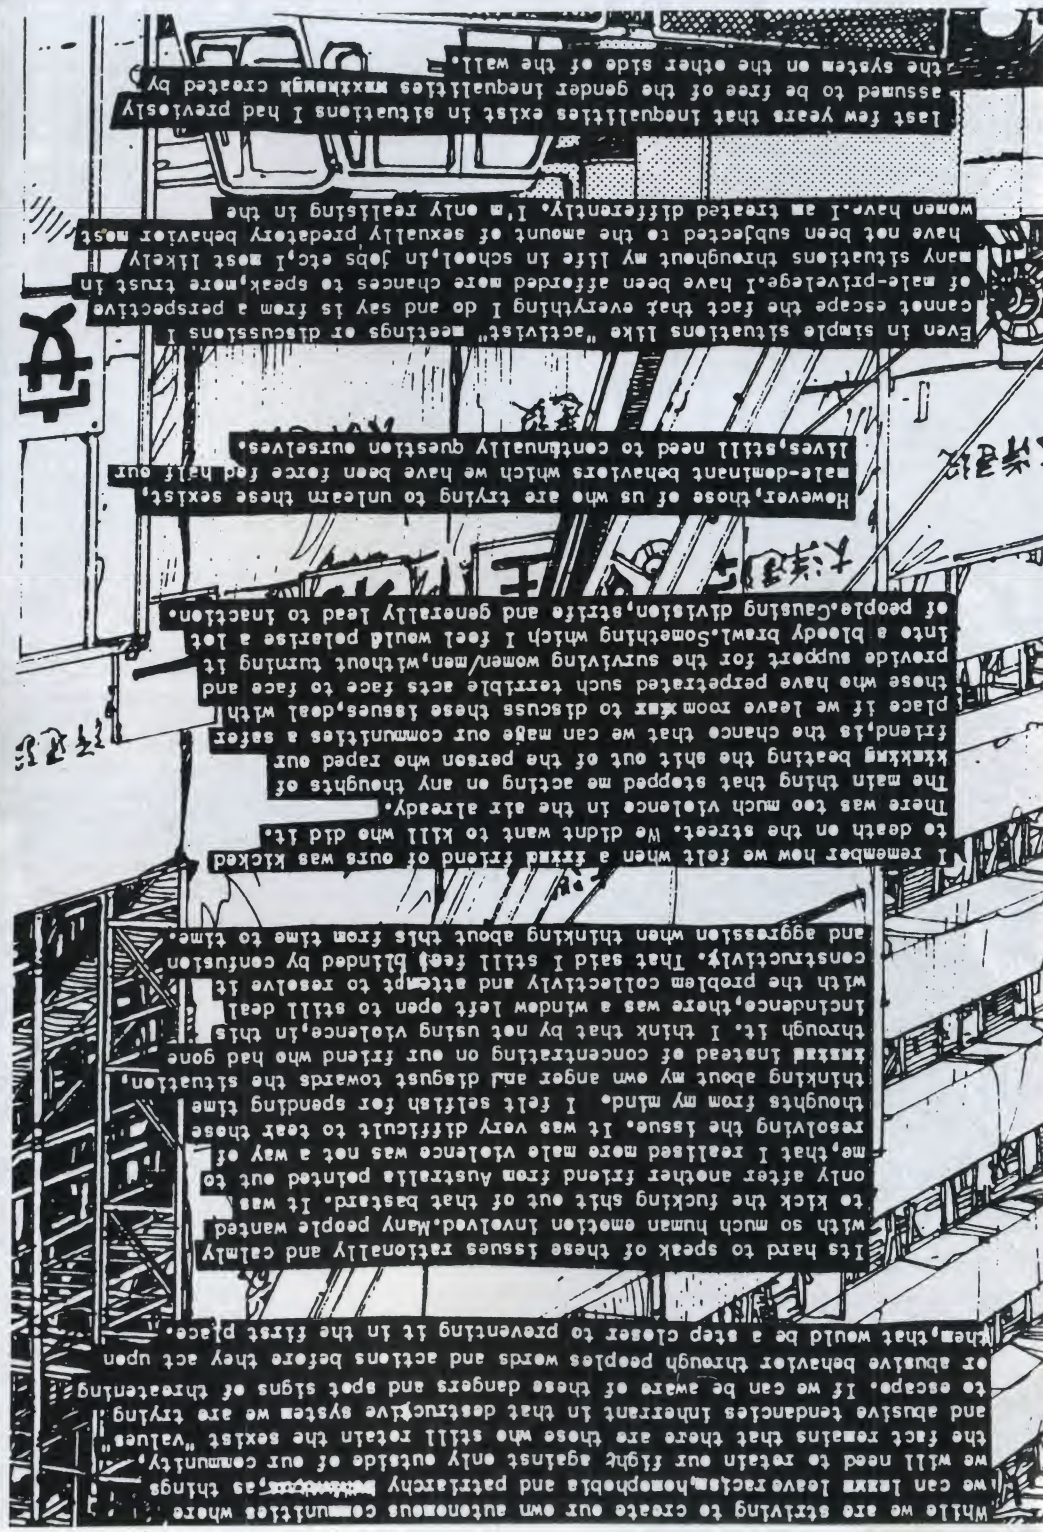 While we are striving to create our own autonomous communities where
we can leave racism, homophobia and patriarchy, as things
we will need to retain our fight against only outside of our community,
the fact remains that there are those who still retain the sexist "values"
and abusive tendancies inherrant in that destructive system we are trying
to escape. If we can be aware of these dangers and spot signs of threatening
or abusive behavior through peoples words and actions before they act upon
them,that would be a step closer to preventing it in the first place.
Its hard to speak of these issues rationally and calmly
with so much human emotion involved.Many people wanted
to kick the fucking shit out of that bastard. It was
only after another friend from Australia pointed out to
me,that I realised more male violence was not a way of
resolving the issue. It was very difficult to tear those
thoughts from my mind. I felt selfish for spending time
thinking about my own anger and disgust towards the situation,
instead of concentrating on our friend who had gone
through it. I think that by not using violence,in this
incidence,there was a window left open to still deal
with the problem collectivly and attempt to resolve it
constructivly. That said I still feel blinded by confusion
and aggression when thinking about this from time to time.
I remember how we felt when a friend of ours was kicked
to death on the street. We didnt want to kill who did it.
There was too much violence in the air already.
The main thing that stopped me acting on any thoughts of
beating the shit out of the person who raped our
friend,is the chance that we can make our communities a safer
place if we leave room to discuss these issues,deal with
those who have perpetrated such terrible acts face to face and
provide support for the surviving women/men,without turning it
into a bloody brawl.Something which I feel would polarise a lot
of people.Causing division,strife and generally lead to inaction.
However,those of us who are trying to unlearn these sexist,
male-dominant behaviors which we have been force fed half our
lives,still need to continually question ourselves.
Even in simple situations like "activist" meetings or discussions I
cannot escape the fact that everything I do and say is from a perspective
of male-privelege.I have been afforded more chances to speak,more trust in
many situations throughout my life in school,in jobs etc,I most likely
have not been subjected to the amount of sexually predatory behavior most
women have.I am treated differently. I'm only realising in the
last few years that inequalities exist in situations I had previosly
assumed to be free of the gender inequalities created by
the system on the other side of the wall.